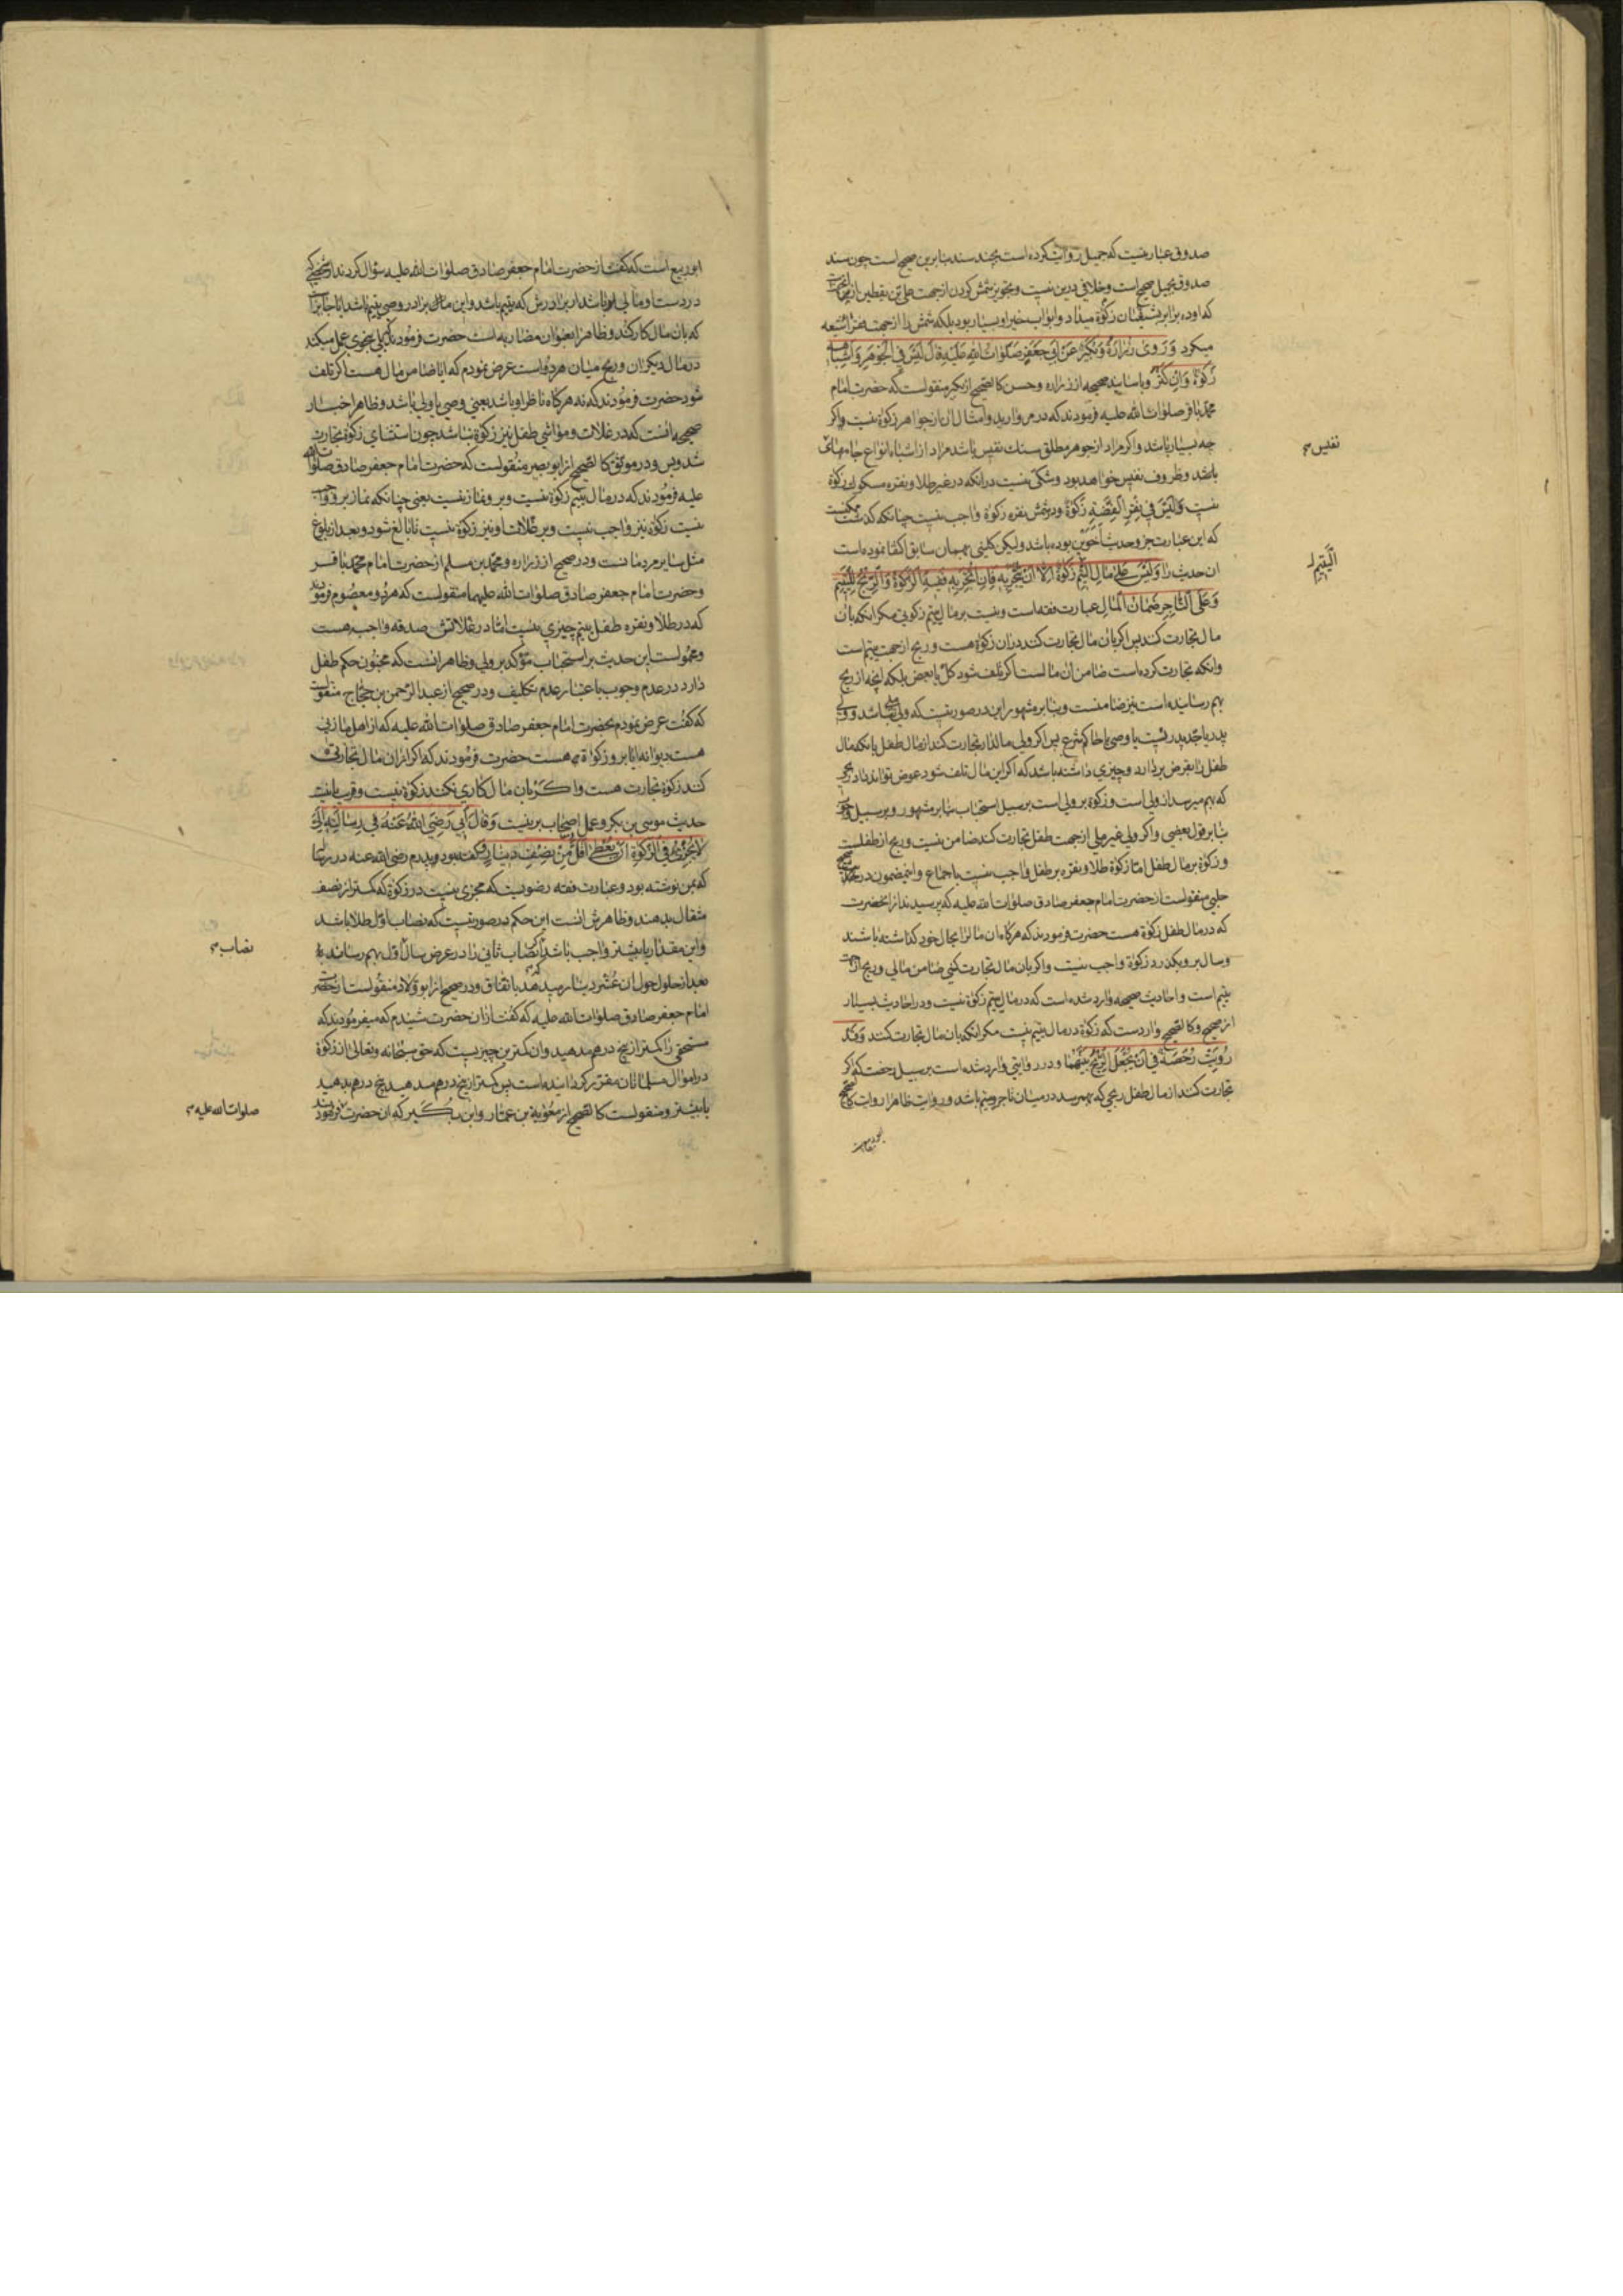 صدوق عبارتیست که جمیل روایت کرده است بچند سند بنابرین صحیح است چون سند
صدوق بجمیل صحیح است و خلافی درین نیست و تجویز شمش کردن از جهت علی بن یقطین از
که او ده برابر بشیعیان زکوة میداد و ابواب خیر او بسیار بود بلکه شمش را از جهت فقرا شیعه
میکرد وَرَوی زُرَارَةُ وَبُکَیْرٌ عَنْ اَبی جَعْفَرٍ صَلَوَاتُ اللهِ عَلَیْهِ قَالَ لَیْسَ فِی الْجَوْهَرِ وَاَشْبَاهِه
زَکٰوةٌ وَاِنْ کَثُرَ و باسانید صحیحه از زراره و حسن کالصحیح از بکیر منقولست که حضرت امام
محمد باقر صلوات الله علیه فرمودند که در مروارید و امثال آن از جواهر زکوة نیست و اکر
چه بسیار باشد و اکر مراد از جوهر مطلق سنك نفیس باشد مراد از اشباه انواع جامه‌های
نفیس
باشد و ظروف نفیس خواهد بود و شکی نیست درانکه در غیر طلا و نقره مسکوك زکوة
نیست وَلَیْسَ فی نُقَرِ الْفِضَّةِ زَکٰوةٌ و در شمش نقره زکوة واجب نیست چنانکه کذشت
که این عبارت جزو حدیث اخوین بوده باشد ولیکن کلینی بهمان سابق اکتفا نموده است
الْیَتِیمِ
ان حدیث را وَلَیْسَ عَلیٰ مَالِ الْیَتِیمِ زَکٰوةٌ اِلّا اَنْ یُتَّجَرَ بِهِ فَاِنِ اتُّجِرَ بِهِ فَفِیهِ الزَّکٰوةُ وَالرِّبْحُ لِلْیَتِیمِ
وَعَلَی التَّاجِرِ ضَمَانُ الْمَالِ عبارت فقه است و نیست بر مال یتیم زکوتی مکر انکه بان
مال تجارت کنند پس اکر بان مال تجارت کنند دران زکوة هست و ربح از جهت یتیم است
وانکه تجارت کرده است ضامن ان مالست اکر تلف شود کل یا بعض بلکه انچه از ربح
بهم رسانیده است نیز ضامنست و بنابر مشهور این در صورتیست که ولی ملی نباشد و ولی
پدر یا جد پدریست یا وصی یا حاکم شرع پس اکر ولی مالدار تجارت کند از مال طفل یا بانکه مال
طفل را بقرض بردارد و چیزی داشته باشد که اکر این مال تلف شود عوض تواند داد ربحی
که بهم میرسد از ولی است و زکوة بر ولی است بر سبیل استحباب بنابر مشهور و بر سبیل وجوب
بنابر قول بعضی و اکر ولی غیر ملی از جهت طفل تجارت کند ضامن نیست و ربح از طفلست
و زکوة بر مال طفل اما زکوة طلا و نقره بر طفل واجب نیست باجماع و اینمضمون در حدیث صحیح
حلبی منقولست از حضرت امام جعفر صادق صلوات الله علیه که پرسیدند از انحضرت
که در مال طفل زکوة هست حضرت فرمودند که هرکاه ان مال را بحال خود کذاشته باشند
و سال برو بکذرد زکوة واجب نیست و اکر بان مال تجارت کنی ضامن مالی و ربح از
یتیم است و احادیث صحیحه وارد شده است که در مال یتیم زکوة نیست و در احادیث بسیار
از صحیح و کالصحیح واردست که زکوة در مال یتیم نیست مکر انکه بان مال تجارت کنند وَقَد
رُوِیَتْ رُخْصَةٌ فی اَنْ یُجْعَلَ الرِّبْحُ بَیْنَهُمَا و در روایتی وارد شده است بر سبیل رخصت که اکر
تجارت کنند از مال طفل ربحی که بهم رسد در میان تاجر و یتیم باشد و روایت ظاهرا روایت کالصحیح
ابو ربیع است که کفت از حضرت امام جعفر صادق صلوات الله علیه سؤال کردند از شخصی که
در دست او مالی باشد از برادرش که یتیم باشد و این برادر وصی یتیم باشد ایا جایز است
که بان مال کار کند و ظاهرا بعنوان مضاربه است حضرت فرمود که بلی بنحوی عمل میکند
در مال دیکران و ربح میان هر دو است عرض نمودم که ایا ضامن مال هست اکر تلف
شود حضرت فرمودند که نه هرکاه ناظر او باشد یعنی وصی یا ولی باشد و ظاهر اخبار
صحیحه انست که در غلات و مواشی طفل نیز زکوة نباشد چون استثنای زکوة تجارت
شد و بس و در موثق کالصحیح از ابو بصیر منقولست که حضرت امام جعفر صادق صلوات الله
علیه فرمودند که در مال یتیم زکوة نیست و برو نماز نیست یعنی چنانکه نماز برو واجب
نیست زکوة نیز واجب نیست و بر غلات او نیز زکوة نیست تا بالغ شود و بعد از بلوغ
مثل سایر مردمانست و در صحیح از زراره و محمد بن مسلم از حضرت امام محمد باقر
و حضرت امام جعفر صادق صلوات الله علیهما منقولست که هر دو معصوم فرمودند
که در طلا و نقره طفل یتیم چیزی نیست اما در غلاتش صدقه واجب هست
و محمولست این حدیث بر استحباب مؤکد بر ولی و ظاهر انست که مجنون حکم طفل
دارد در عدم وجوب باعتبار عدم تکلیف و در صحیح از عبد الرحمن بن حجاج منقولست
که کفت عرض نمودم بحضرت امام جعفر صادق صلوات الله علیه که از اهل ما زنی
هست دیوانه ایا برو زکوة هست حضرت فرمودند که اکر از ان مال تجارتی
کنند زکوة تجارت هست و اکر بان مال کاری نکنند زکوة نیست و قریب باینست
حدیث موسی بن بکر و عمل اصحاب برینست وَقَالَ اَبی رَضِیَ اللهُ عَنْهُ فی رِسَالَتِهِ اِلَیَّ
لَا یُجْزِیُ فِی الزَّکٰوةِ اَنْ یُعْطیٰ اَقَلَّ مِنْ نِصْفِ دِینَارٍ کفته بود پدرم رضی الله عنه در رساله
که بمن نوشته بود و عبارت فقه رضویست که مجزی نیست در زکوة که کمتر از نصف
مثقال بدهند و ظاهرش انست این حکم در صورتیست که نصاب اول طلا باشد
نصاب
و این مقدار یا بیشتر واجب باشد نصاب ثانی را در عرض سال اول بهم رساند
بعد از حلول حول ان عشر دینار میدهد باتفاق و در صحیح از ابو ولاد منقولست از حضرت
امام جعفر صادق صلوات الله علیه که کفت ازان حضرت شنیدم که میفرمودند که
مستحقی را کمتر از پنج درهم مدهید وان کمترین چیزیست که حق سبحانه و تعالی از زکوة
در اموال مسلمانان مقرر کردانیده است پس کمتر از پنج درهم مدهید پنج درهم بدهید
صلوات الله علیه
یا بیشتر و منقولست کالصحیح از معویة بن عمار و ابن بکیر که ان حضرت فرمودند